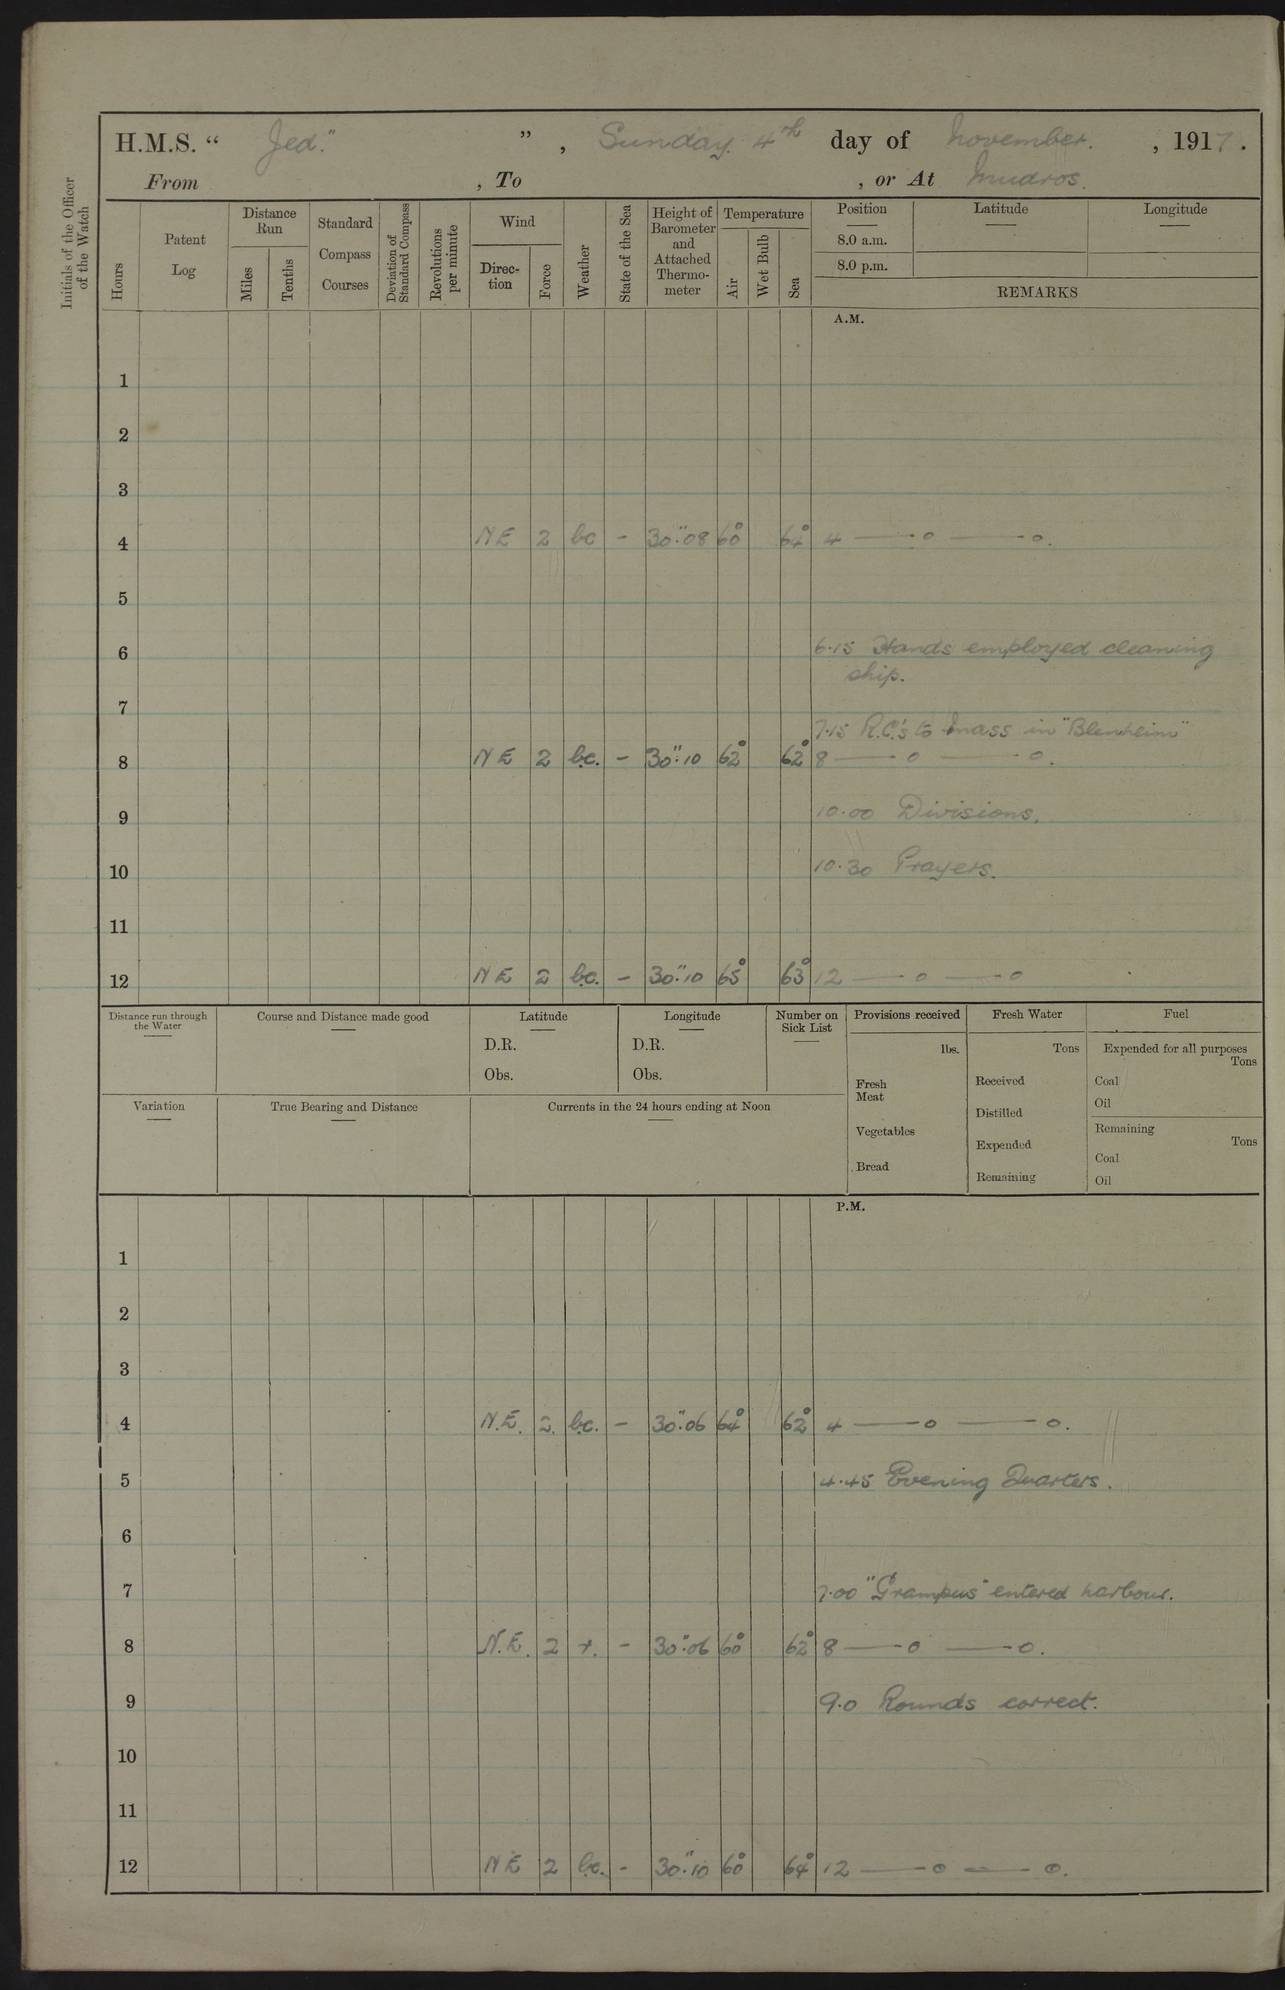 H.M.S. “ Jed." ”, Sunday 4th day of November. , 1917.
From , To , or At Mudros.
Initials of the Officer
of the Watch
Hours
Patent
Log
Distance
Run
Miles
Tenths
Standard
Compass
Courses
Deviation of
Standard Compass
Revolutions
per minute
Wind
Direc-
tion
Force
Weather
State of the Sea
Height of
Barometer
and
Attached
Thermo-
meter
Temperature
Air
Wet Bulb
Sea
Position
8.0 a.m.
8.0 p.m.
Latitude
Longitude
REMARKS
A.M.
1
2
3
4 NE 2 bc - 30".08 60° 64° 4 —— o —— o.
5
6 6.15 Hands employed cleaning
ship.
7
7.15 R.C.'s to Mass in "Blenheim"
8 NE 2 b.c. - 30".10 62° 62° 8 —— o —— o.
9 10.00 Divisions.
10 10.30 Prayers.
11
12 NE 2 b.c. - 30".10 65° 63° 12 —— o —— o
Distance run through
the Water
Course and Distance made good
Latitude
D.R.
Obs.
Longitude
D.R.
Obs.
Number on
Sick List
Provisions received
lbs.
Fresh
Meat
Vegetables
Bread
Fresh Water
Tons
Received
Distilled
Expended
Remaining
Fuel
Expended for all purposes
Tons
Coal
Oil
Remaining
Tons
Coal
Oil
Variation
True Bearing and Distance
Currents in the 24 hours ending at Noon
P.M.
1
2
3
4 N.E. 2. b.c. - 30".06 64° 62° 4 —— o —— o.
5 4.45 Evening Quarters.
6
7 7.00 "Grampus" entered harbour.
8 N.E. 2 r. - 30".06 60° 62° 8 —— o —— o.
9 9.0 Rounds correct.
10
11
12 NE 2 b.c. - 30".10 60° 64° 12 —— o —— o.